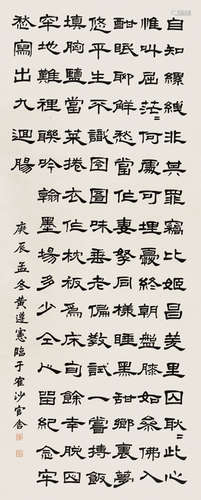 自知縲絏非其罪竊比姬昌羑里囚耿=此心
惟叫屈茫=何處可埋憂終朝盤膝如參佛入
酣眠聊解愁當作妻孥同睡黑甜鄉裏夢
悠平生不識囹圄味垂老偏教試
填胸鹽當菜羹衣作枕板為床自餘幸脫
牢地難裡聯吟翰墨場多少全人留紀念牢
愁寫出九迴腸
庚辰孟冬黃遵憲臨于崔沙官舍